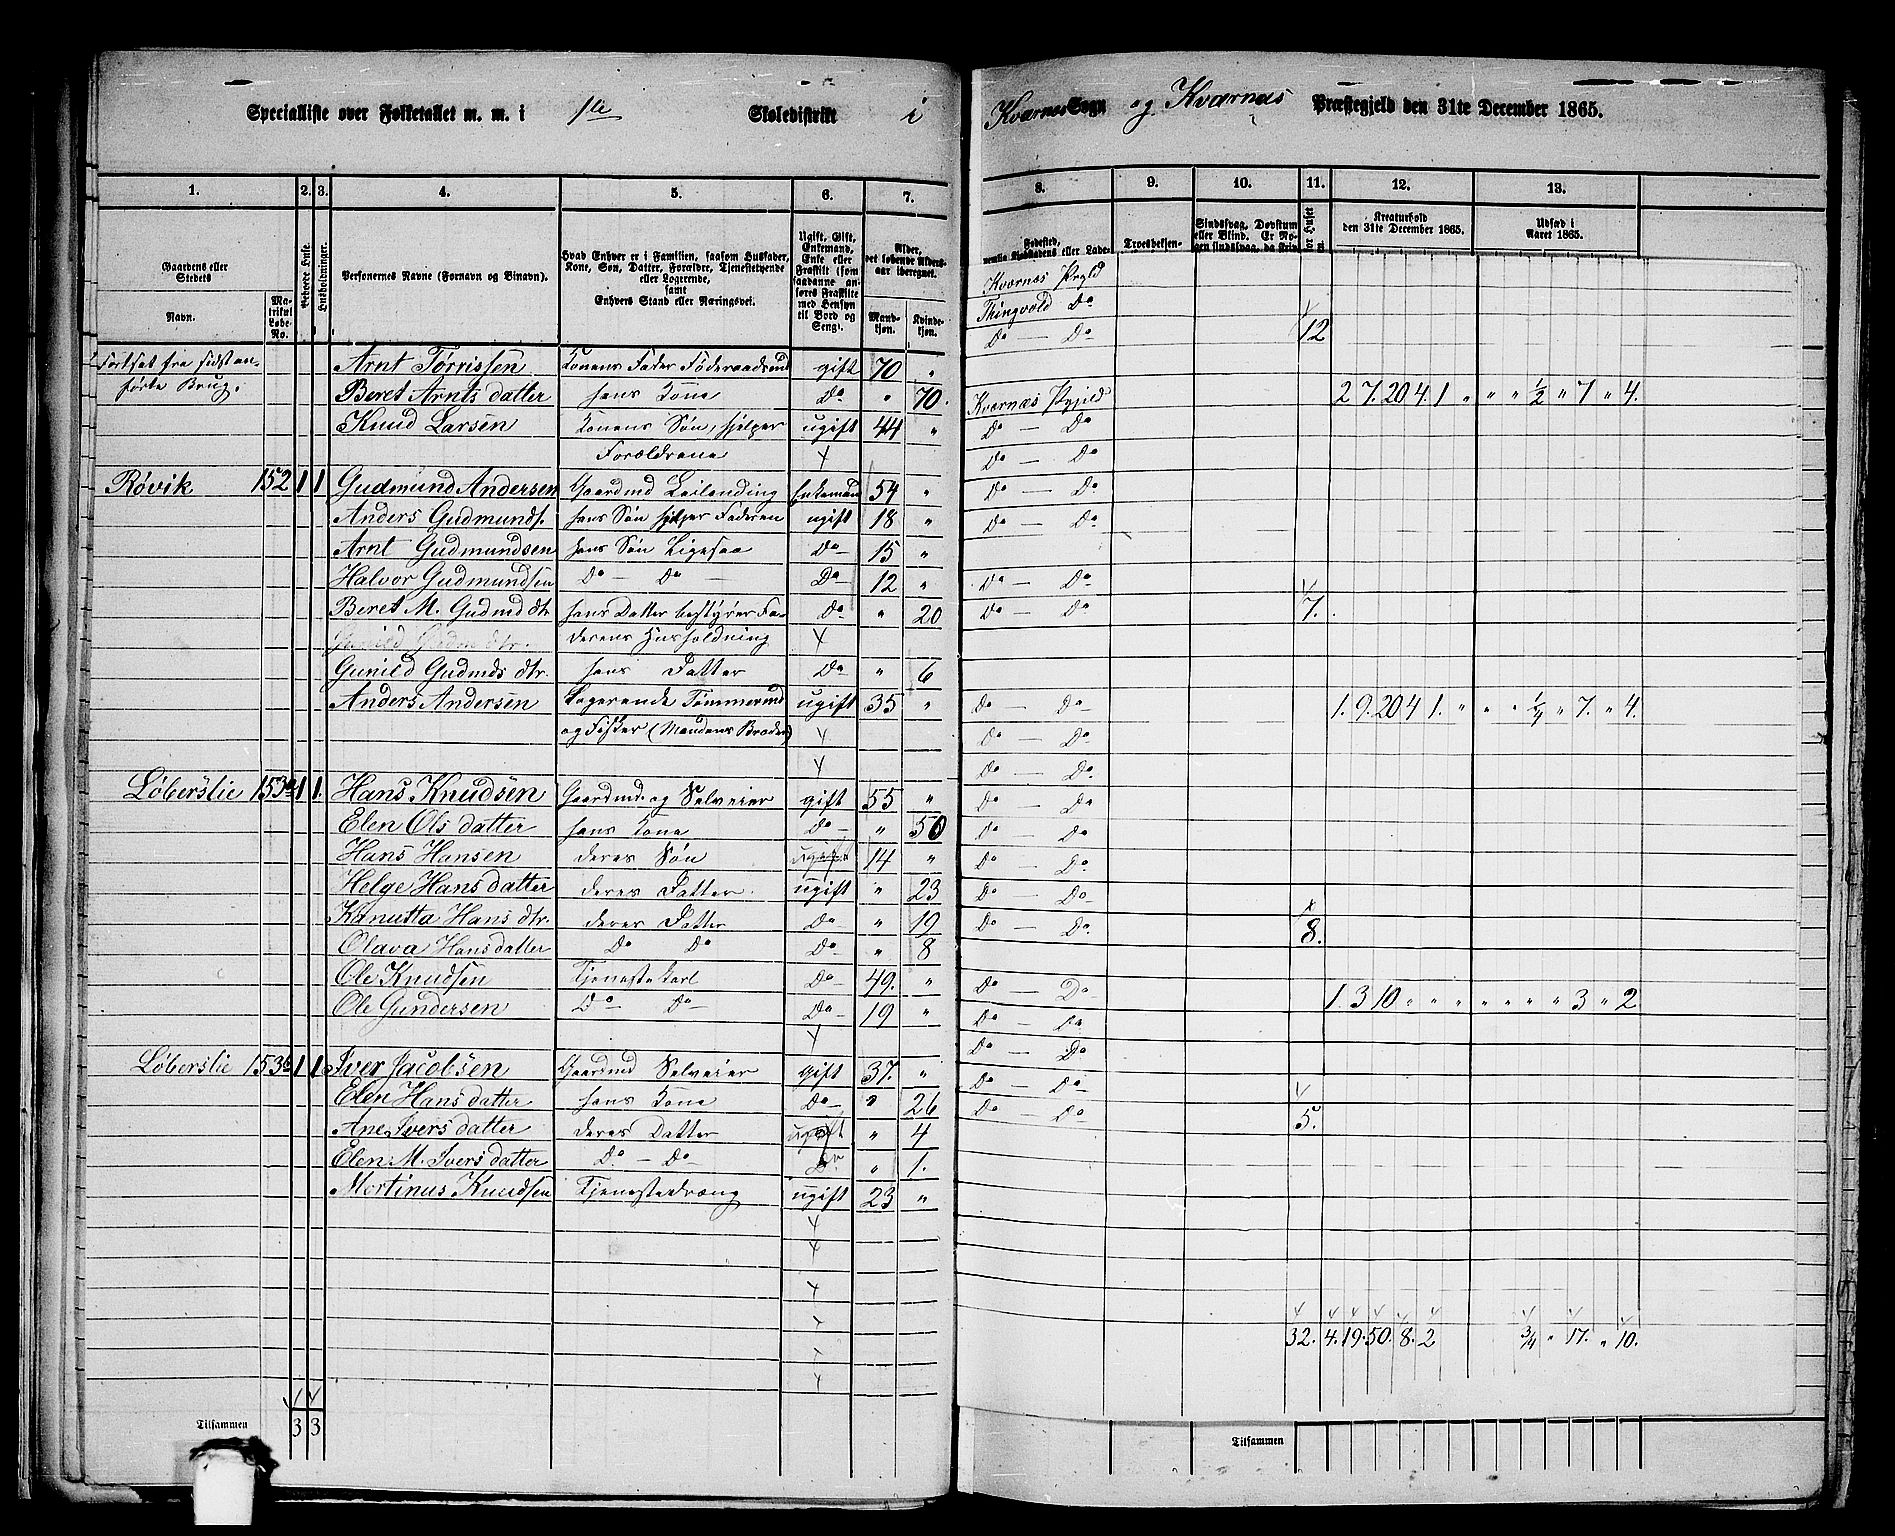 Specialliste over Folketallet m. m. i 1ste Skoledistrikt i Kværnes Sogn og Kværnæs Præstegjeld den 31te December 1865.
1. 2. 3. 4. 5. 6. 7. 8. 9. 10. 11. 12. 13.
Gaardens eller Stedets
Navn.
Matrikul Løbe-No.
Beboede Huse.
Husholdninger.
Personernes Navne (Fornavn og Binavn).
Hvad Enhver er i Familien, saasom Husfader, Kone, Søn, Datter, Forældre, Tjenestetyende eller Logerende,
samt
Enhvers Stand eller Næringsvei.
Ugift, Gift, Enkemand, Enke eller Fraskilt (som saadanne anføres Fraskilte med Hensyn til Bord og Seng).
Alder, det løbende Alders-aar iberegnet.
Mandkjøn.
Kvindekjøn.
Fødested,
Troesbekjen-
Sindssvag, Døvstum eller Blind. Er No-
Kreaturhold den 31te December 1865.
Udsæd i Aaret 1865.
Kværnæs Prgld
Thingvold Do
Do — Do 12
Fortsat fra sidst an- Arnt Tørrissen Konens Fader Føderaadsmd gift 70 "
førte Brug. Beret Arnts datter hans Kone Do " 70. Kværnæs Prgjeld 2 7. 20 4 1 " " " ½ " 7 " 4.
Knud Larsen Konens Søn, hjelper ugift 44 " Do — Do
Forældrene Do — Do
Røvik 152 1 1 Gudmund Andersen Gaardmd Leilending Enkemand 54 " Do — Do
Anders Gudmunds. hans Søn hjelper Faderen ugift 18 " Do — Do
Arnt Gudmundsen hans Søn Ligesaa Do 15 "
Halvor Gudmundsen Do — Do — Do 12 " Do — Do
Beret M. Gudmd dtr hans Datter bestyrer Fa- Do " 20 Do — Do 7.
Gunild Gudm dtr. derens Husholdning
Gunild Gudmds dtr. hans Datter Do " 6
Anders Andersen Logerende Tømmermd ugift 35 " Do — Do 1. 9. 20 4 1. " " " ¼ " 7. " 4.
og Fisker (Mandens Broder) Do — Do
Do — Do
Løberslie 153a 1 1. Hans Knudsen Gaardmd. og Selveier gift 55 " Do — Do
Elen Ols datter hans Kone Do " 50 Do — Do
Hans Hansen deres Søn ugift 14 " Do — Do
Helge Hans datter deres Datter. ugift " 23 Do — Do
Kanutta Hans dtr. deres Datter Do " 19 Do — Do 8.
Olava Hans datter Do Do Do " 8
Ole Knudsen Tjenestekarl Do 49. " Do — Do 1. 3 10 " " " " " " " 3 " 2
Ole Gundersen Do — Do Do 19 " Do — Do
Do — Do
Løberslie 153b 1 1 Iver Jacobsen Gaardmd Selveier Gift 37. " Do — Do
Elen Hans datter hans Kone Do " 26 Do — Do 5.
Ane Ivers datter deres Datter ugift " 4
Elen M. Ivers datter Do — Do Do " 1.
Mortinus Knudsen Tjenestedræng ugift 23 "
32. 4. 19. 50. 8. 2 ¾ " 17. " 10.
Tilsammen 3 3
Tilsammen